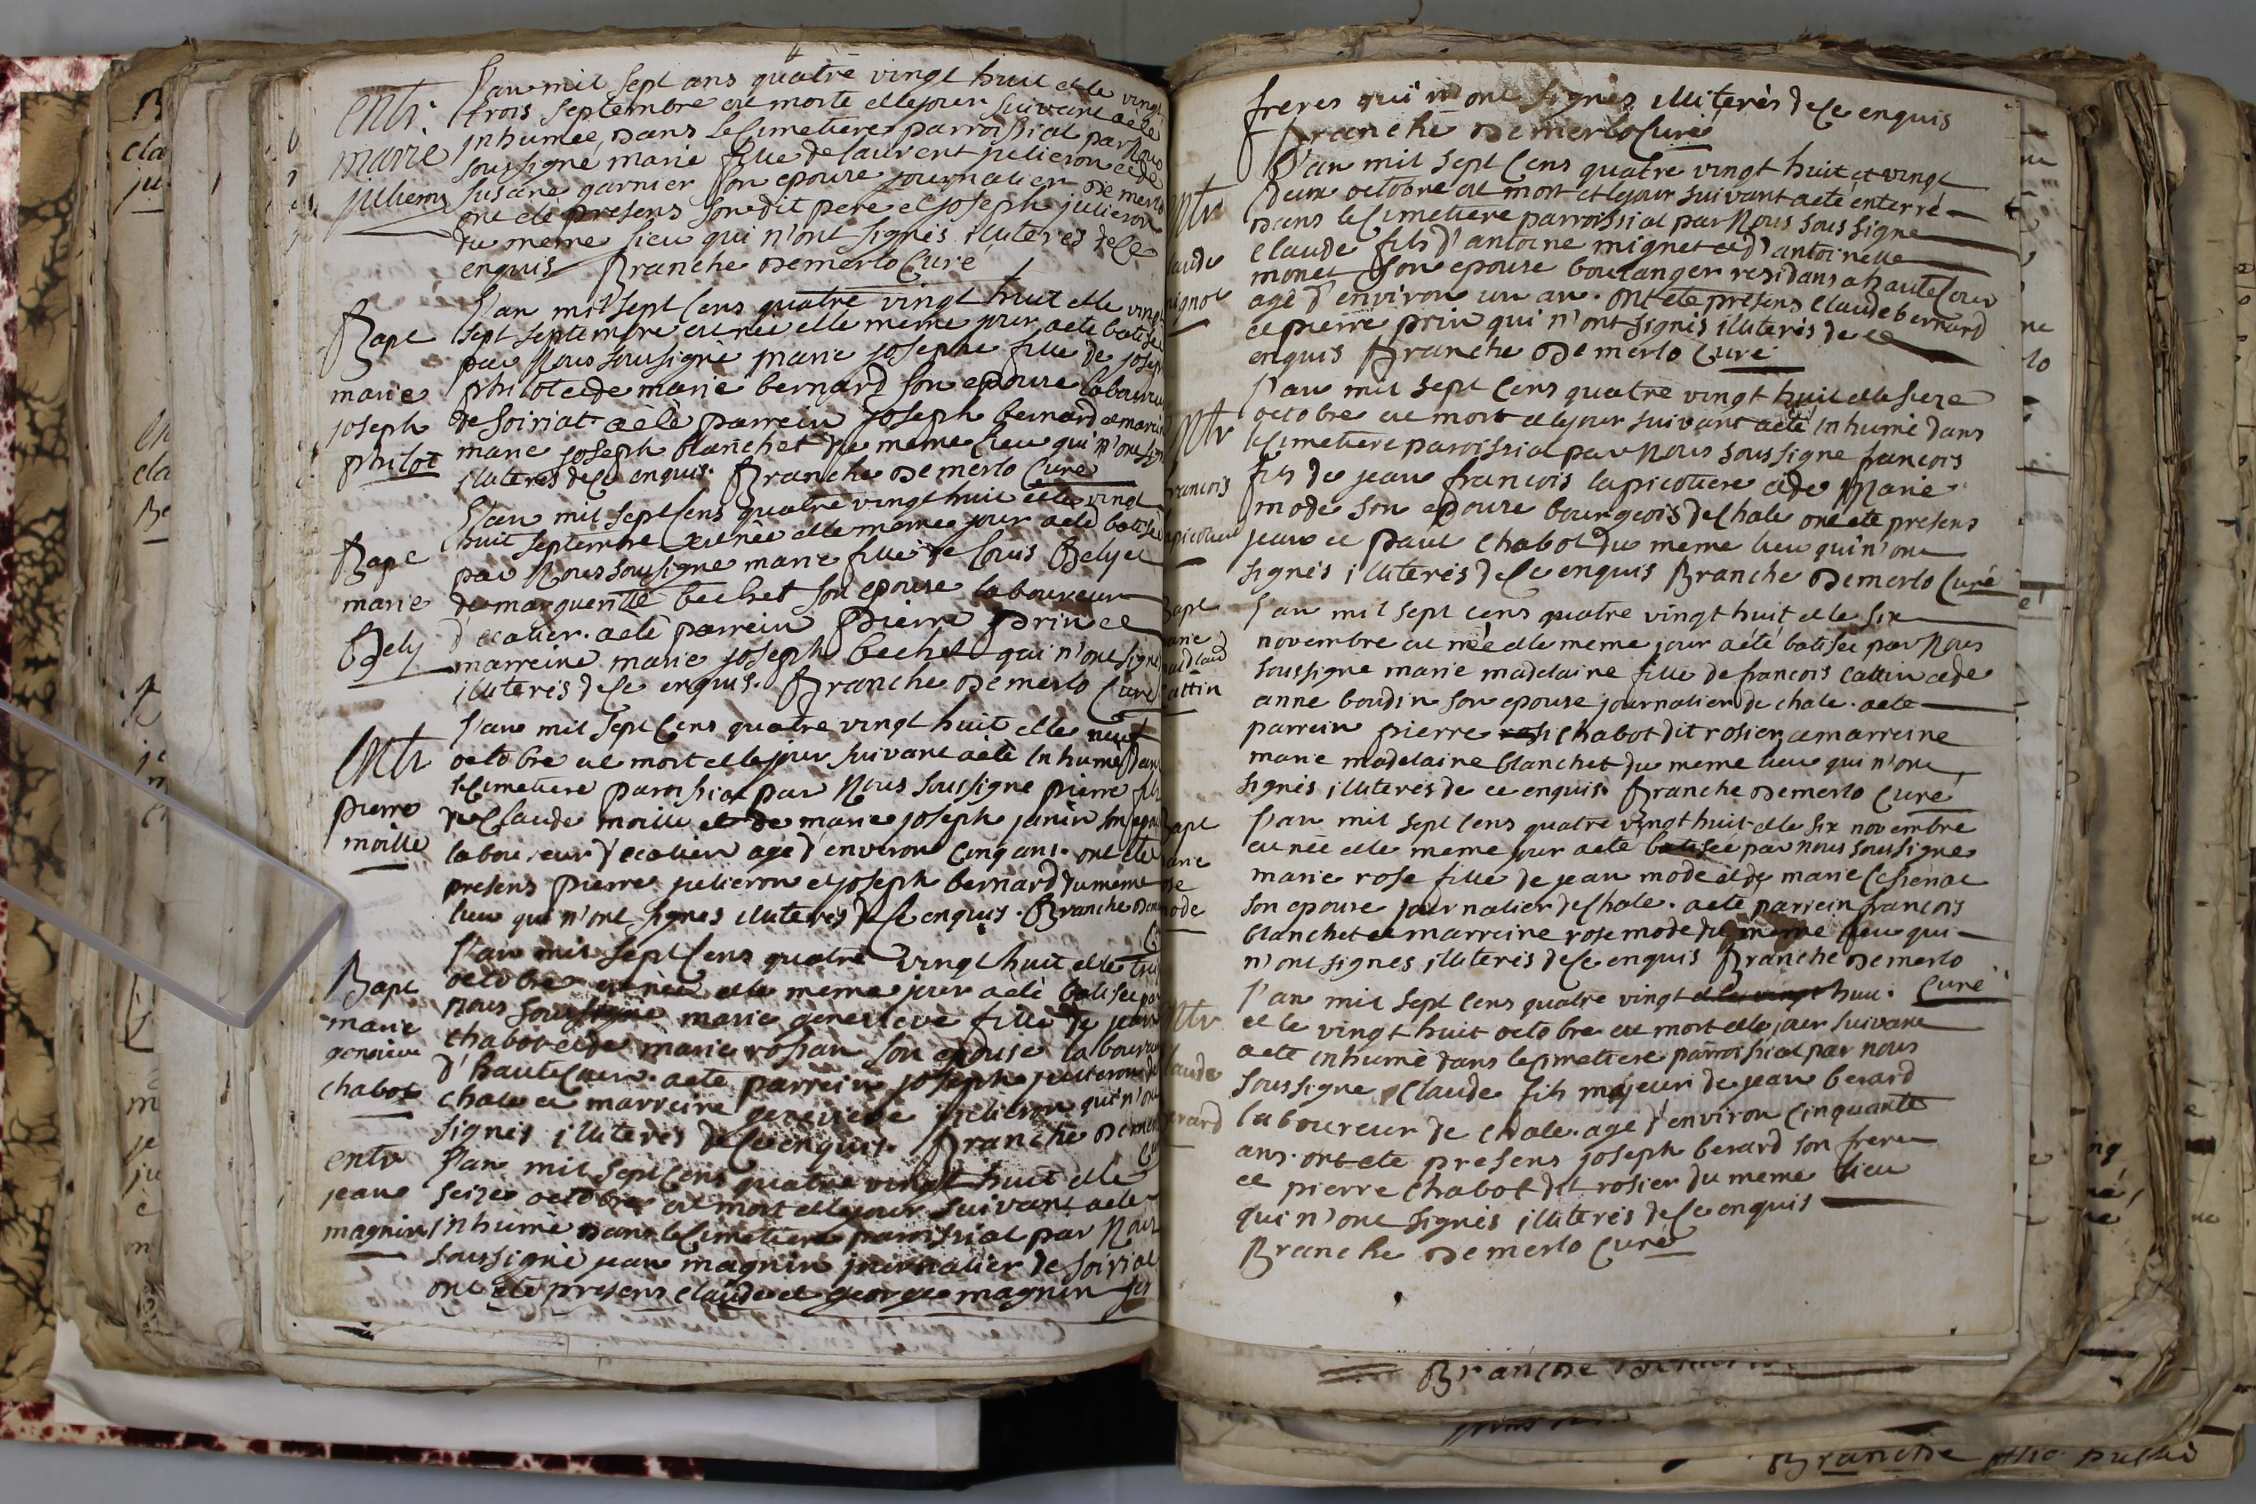 entr.
marie
julieron
L'an mil sept ans quatre vingt huit et le vingt
trois septembre est morte et le jour suivant a été
inhumée dans le cimetiere parroissial par Nous
soussigné marie fille de laurent julieron et de
susane garnier son epouse journalier de merlo
ont été presens son dit pere et joseph julieron
du meme lieu qui n'ont signés illiterés de ce
enquis Branche de merlo Curé
Bapt
marie
joseph
philot
L'an mil sept Cens quatre vingt huit et le vingt
sept septembre est née et le meme jour a eté batisée
par Nous soussigné marie josephe fille de joseph
philot et de marie bernard son epouse laboureur
de soiriat. a eté parrein joseph bernard et marreine
marie joseph blanchet du meme lieu qui n'ont sign
illiterés de ce enquis. Branche de merlo Curé
Bapt
marie
Bely
L'an mil sept Cens quatre vingt huit et le vingt
huit septembre est née et le meme jour a eté batisée
par Nous soussigné marie fille de Louis Bely et
de margueritte bechet son epouse laboureur
d'ecolier. a eté parrein Pierre Prin et
marreine marie joseph bechet qui n'ont signé
illiterés de ce enquis. Branche de merlo Curé
Entr
pierre
moille
L'an mil sept Cens quatre vingt huit et le neuf
octobre est mort et le jour suivant a eté inhumé dans
le Cimetiere paroissial par Nous soussigné pierre fils
de Claude moille et de marie joseph janin son epou
laboureur d'ecolier agé d'environ Cinq ans. ont eté
presens pierre julieron et joseph bernard du meme
lieu qui n'ont signés illiterés de ce enquis. Branche de m
Bapt
marie
genevieve
chabot
L'an mil sept Cens quatre vingt huit et le
octobre est née et le meme jour a eté batisée par
nous soussigné marie genevieve fille de jean
chabot et de marie rossan son epouse laboureur
d'hautecour. a eté parrein joseph julieron de
chale et marreine genevieve julieron qui n'ont
signés illiterés de ce enquis. Branche de merlo
entr
jean
magnin
L'an mil sept Cens quatre vingt huit et le
seize octobre est mort et le jour suivant a eté
inhumé dans le Cimetiere paroissial par Nous
soussigné jean magnin journalier de soiriat
ont eté presens claude et george magnin ses
freres qui n'ont signés illiterés de ce enquis
Branche de merlo Curé
Entr
Claude
mignot
L'an mil sept Cens quatre vingt huit et vingt
deux octobre est mort et le jour suivant a eté enterré
dans le Cimetiere parroissial par Nous soussigné
Claude fils d'antoine mignet et d'antoinette
monet son epouse boulanger residans a hautecour
agé d'environ un an. ont eté presens Claude bernard
et pierre prin qui n'ont signés illiterés de ce
enquis Branche de merlo Curé
Entr
francois
lapicotiere
L'an mil sept Cens quatre vingt huit et le sieze
octobre est mort et le jour suivant a eté inhumé dans
le Cimetiere paroissial par Nous soussigné francois
fils de jean francois lapicotiere et de Marie
mode son epouse bourgeois de Chale ont eté presens
jean et Paul Chabot du meme lieu qui n'ont
signés illiterés de ce enquis Branche de merlo Curé
Bapt
marie
cattin
L'an mil sept cens quatre vingt huit et le six
novembre est née et le meme jour a eté batisée par Nous
soussigné marie madelaine fille de francois Cattin et de
anne boudin son epouse journalier de chale. a eté
parrein pierre chabot dit rosier et marreine
marie madelaine blanchet du meme lieu qui n'ont
signés illiterés de ce enquis Branche de merlo Curé
Bapt
marie
rose
mode
L'an mil sept Cens quatre vingt huit et le six novembre
est née et le meme jour a eté batisée par nous soussigné
marie rose fille de jean mode et de marie Chenat
son epouse journalier de Chale. a eté parrein francois
blanchet et marreine rose mode du meme lieu qui
n'ont signés illiterés de ce enquis Branche de merlo
Curé
Entr
Claude
berard
L'an mil sept Cens quatre vingt et le vingt huit.
et le vingt huit octobre est mort et le jour suivant
a eté inhumé dans le Cimetiere parroissial par nous
soussigné Claude fils majeur de jean berard
laboureur de chale. agé d'environ Cinquante
ans. ont eté presens joseph berard son frere
et pierre Chabot dit rosier du meme lieu
qui n'ont signés illiterés de ce enquis
Branche de merlo Curé
Branche
Branche